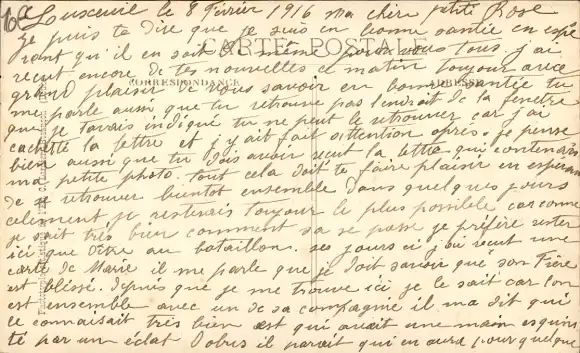 10e Luxeuil le 8 Février 1916 ma chère petite Rose
Je puis te dire que je suis en bonne santée en espé
rent qu'il en soit de même pour vous tous. j'ai
CARTE POSTALE
recut encore de tes nouvelles ce matin toujour avec
CORRESPONDANCE ADRESSE
grand plaisir de vous savoir en bonne santée tu
me parle aussi que tu retrouve pas l'endroit de la fenetre
que je t'avais indiqué tu ne peut le retrouver car j'ai
cachetté la lettre et j'y ait fait attention après. je pense
bien aussi que tu dois avoir recut la lettre qui contenais
ma petite photo. tout cela doit te faire plaisir en esperan
de se retrouver bientot ensemble dans quelques jours
celement je resterais toujour le plus possible car comme
je sait très bien comment sa se passe je préfère rester
ici que d'être au bataillon. ses jours ci j'ai recut une
carte de Marie il me parle que je doit savoir que son Frère
est blissé. depuis que je me trouve ici je le sait car l'on
est ensemble avec un de sa compagnie il m'a dit qu'i
le connaisait très bien est qui avait une main esquin
té par un éclat d'obus il parait qui en aura pour quelque